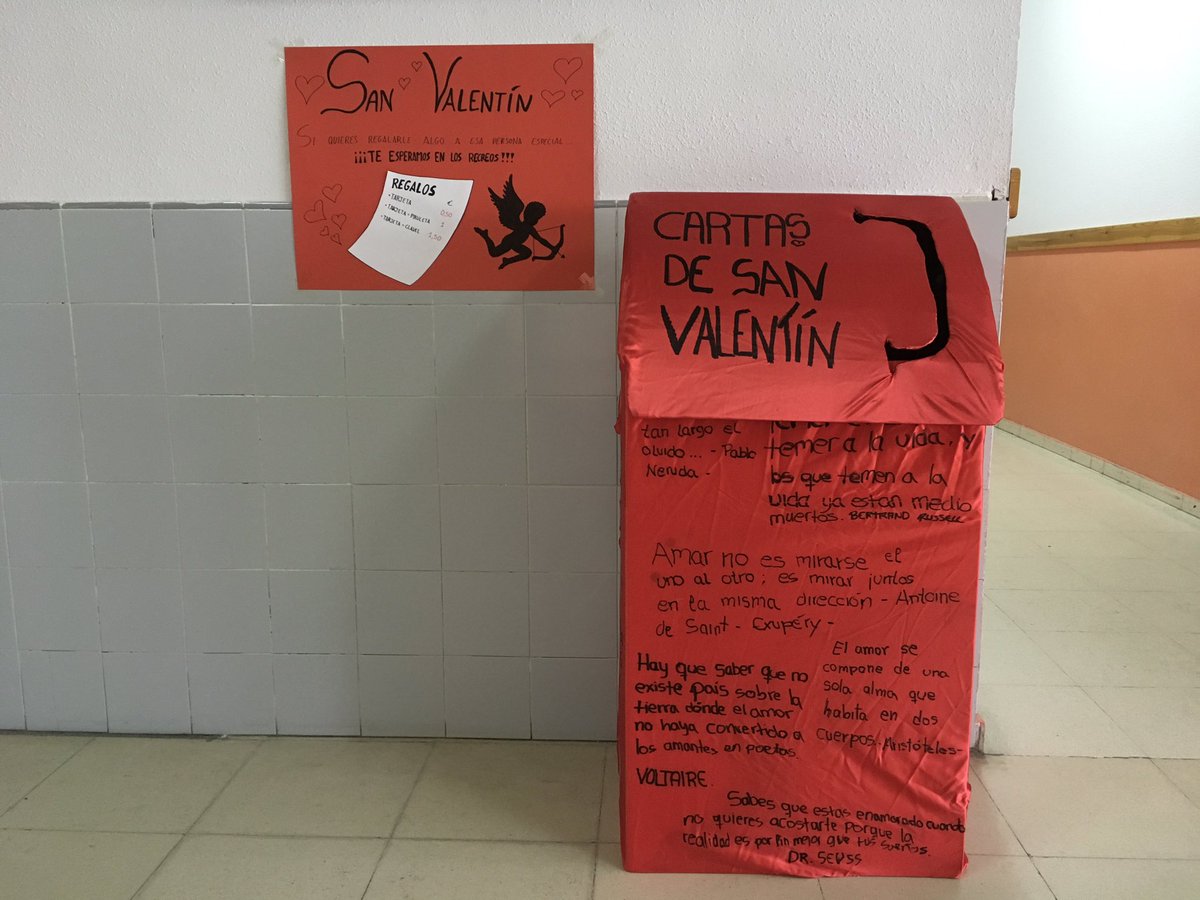 San Valentín
Si quieres regalarle algo a esa persona especial...
¡¡¡TE ESPERAMOS EN LOS RECREOS!!!
REGALOS
€
• TARJETA 0,50
• TARJETA - PIRULETA 1
• TARJETA - CLAVEL 1,50
CARTAS
DE SAN
VALENTÍN
tan largo el
olvido... - Pablo
Neruda -
temer a la vida, y
los que temen a la
vida ya estan medio
muertos. BERTRAND RUSSELL
Amar no es mirarse el
uno al otro; es mirar juntos
en la misma dirección - Antoine
de Saint - Exupéry -
Hay que saber que no
existe país sobre la
tierra dónde el amor
no haya convertido a
los amantes en poetas.
VOLTAIRE.
El amor se
compone de una
sola alma que
habita en dos
cuerpos. Aristóteles-
Sabes que estas enamorado cuando
no quieres acostarte porque la
realidad es por fin mejor que tus sueños.
DR. SEUSS